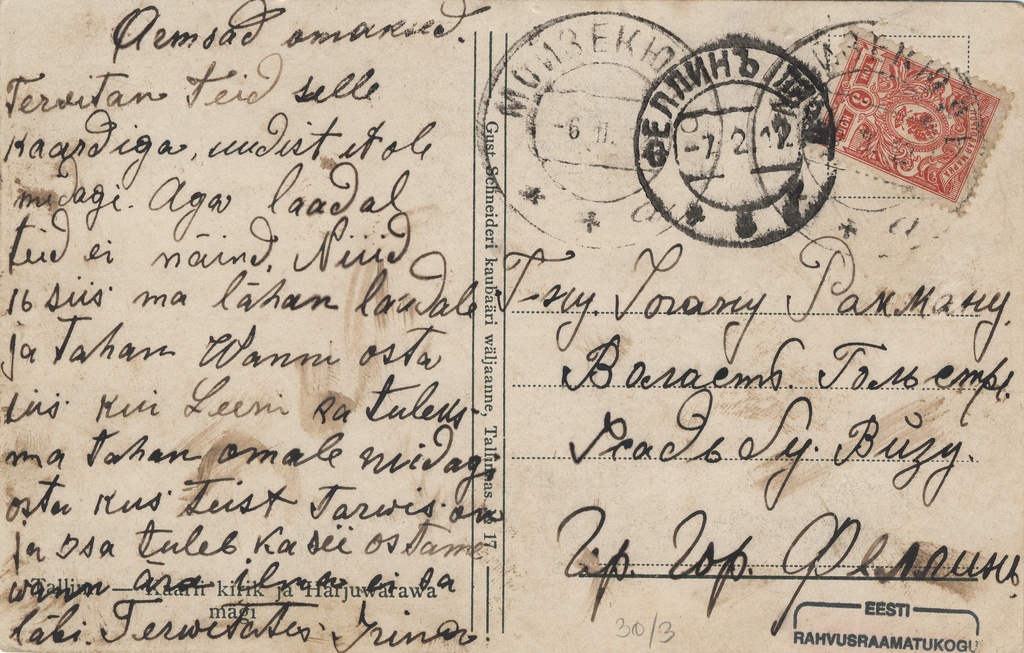 Armsad omaksed.
Terwitan Teid selle
kaardiga, uudist ei ole
midagi. Aga laadal
teid ei näind. Nüüd
16 siis ma lähan laadale
ja tahan Wanni osta
siis kui Leeni ka tuleks
ma tahan omale midagi
osta kus teist tarwis on
ja Isa tuleb ka siis ostame
ära ilma ei saa
läbi. Terwitates
Tallinn — Kaarli kirik ja Harjuwärawa
mägi
Gust. Schneideri kaubaäri wäljaanne, Tallinnas 17
МОИЗЕКЮ
-6 II.
ФЕЛЛИНЪ ЛИФЛ
-7 2 12
Г-ну. Іогану Рахману,
Воласть. Гольстр.
Усадьбу. Визу.
Гр. Гор. Феллинъ
30/3
EESTI
RAHVUSRAAMATUKOGU